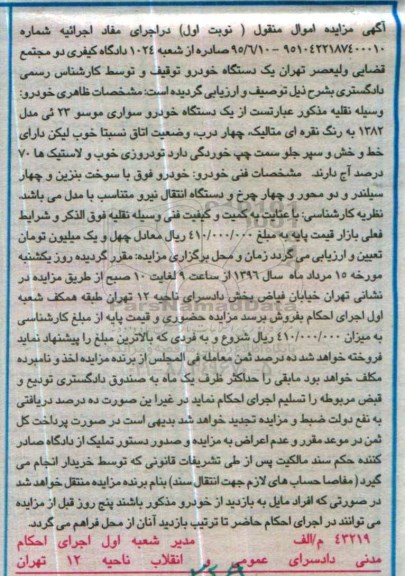 آگهی مزایده اموال منقول ( نوبت اول) دراجرای مفاد اجرائیه شماره
۹۵۱۰۴۲۲۱۸۷۴۰۰۰۱۰ - ۹۵/۶/۱۰ صادره از شعبه ۱۰۲۴ دادگاه کیفری دو مجتمع
قضایی ولیعصر تهران یک دستگاه خودرو توقیف و توسط کارشناس رسمی
دادگستری بشرح ذیل توصیف و ارزیابی گردیده است: مشخصات ظاهری خودرو:
وسیله نقلیه مذکور عبارتست از یک دستگاه خودرو سواری موسو ۲۳ ئی مدل
۱۳۸۲ به رنگ نقره ای متالیک، چهار درب، وضعیت اتاق نسبتا خوب لیکن دارای
خط و خش و سپر جلو سمت چپ خوردگی دارد تودروزی خوب و لاستیک ها ۷۰
درصد آج دارند. مشخصات فنی خودرو: خودرو فوق با سوخت بنزین و چهار
سیلندر و دو محور و چهار چرخ و دستگاه انتقال نیرو متناسب با مدل می باشد.
نظریه کارشناسی: با عنایت به کمیت و کیفیت فنی وسیله نقلیه فوق الذکر و شرایط
فعلی بازار قیمت پایه به مبلغ ۴۱۰/۰۰۰/۰۰۰ ریال معادل چهل و یک میلیون تومان
تعیین و ارزیابی می گردد زمان و محل برگزاری مزایده: مقرر گردیده روز یکشنبه
مورخه ۱۵ مرداد ماه سال ۱۳۹۶ از ساعت ۹ لغایت ۱۰ صبح از طریق مزایده در
نشانی تهران خیابان فیاض بخش دادسرای ناحیه ۱۲ تهران طبقه همکف شعبه
اول اجرای احکام بفروش برسد مزایده حضوری و قیمت پایه از مبلغ کارشناسی
به میزان ۴۱۰/۰۰۰/۰۰۰ ریال شروع و به فردی که بالاترین مبلغ را پیشنهاد نماید
فروخته خواهد شد ده درصد ثمن معامله فی المجلس از برنده مزایده اخذ و نامبرده
مکلف خواهد بود مابقی را حداکثر ظرف یک ماه به صندوق دادگستری تودیع و
قبض مربوطه را تسلیم اجرای احکام نماید در غیر این صورت ده درصد دریافتی
به نفع دولت ضبط و مزایده تجدید خواهد شد بدیهی است در صورت پرداخت کل
ثمن در موعد مقرر و عدم اعتراض به مزایده و صدور دستور تملیک از دادگاه صادر
کننده حکم سند مالکیت پس از طی تشریفات قانونی که توسط خریدار انجام می
گیرد (مفاصا حساب های لازم جهت انتقال سند) بنام برنده مزایده منتقل خواهد شد
در صورتی که افراد مایل به بازدید از خودرو مذکور باشند پنج روز قبل از مزایده
می توانند در اجرای احکام حاضر تا ترتیب بازدید آنان از محل فراهم می گردد.
۴۳۲۱۹ م/الف مدیر شعبه اول اجرای احکام
مدنی دادسرای عمومی و انقلاب ناحیه ۱۲ تهران